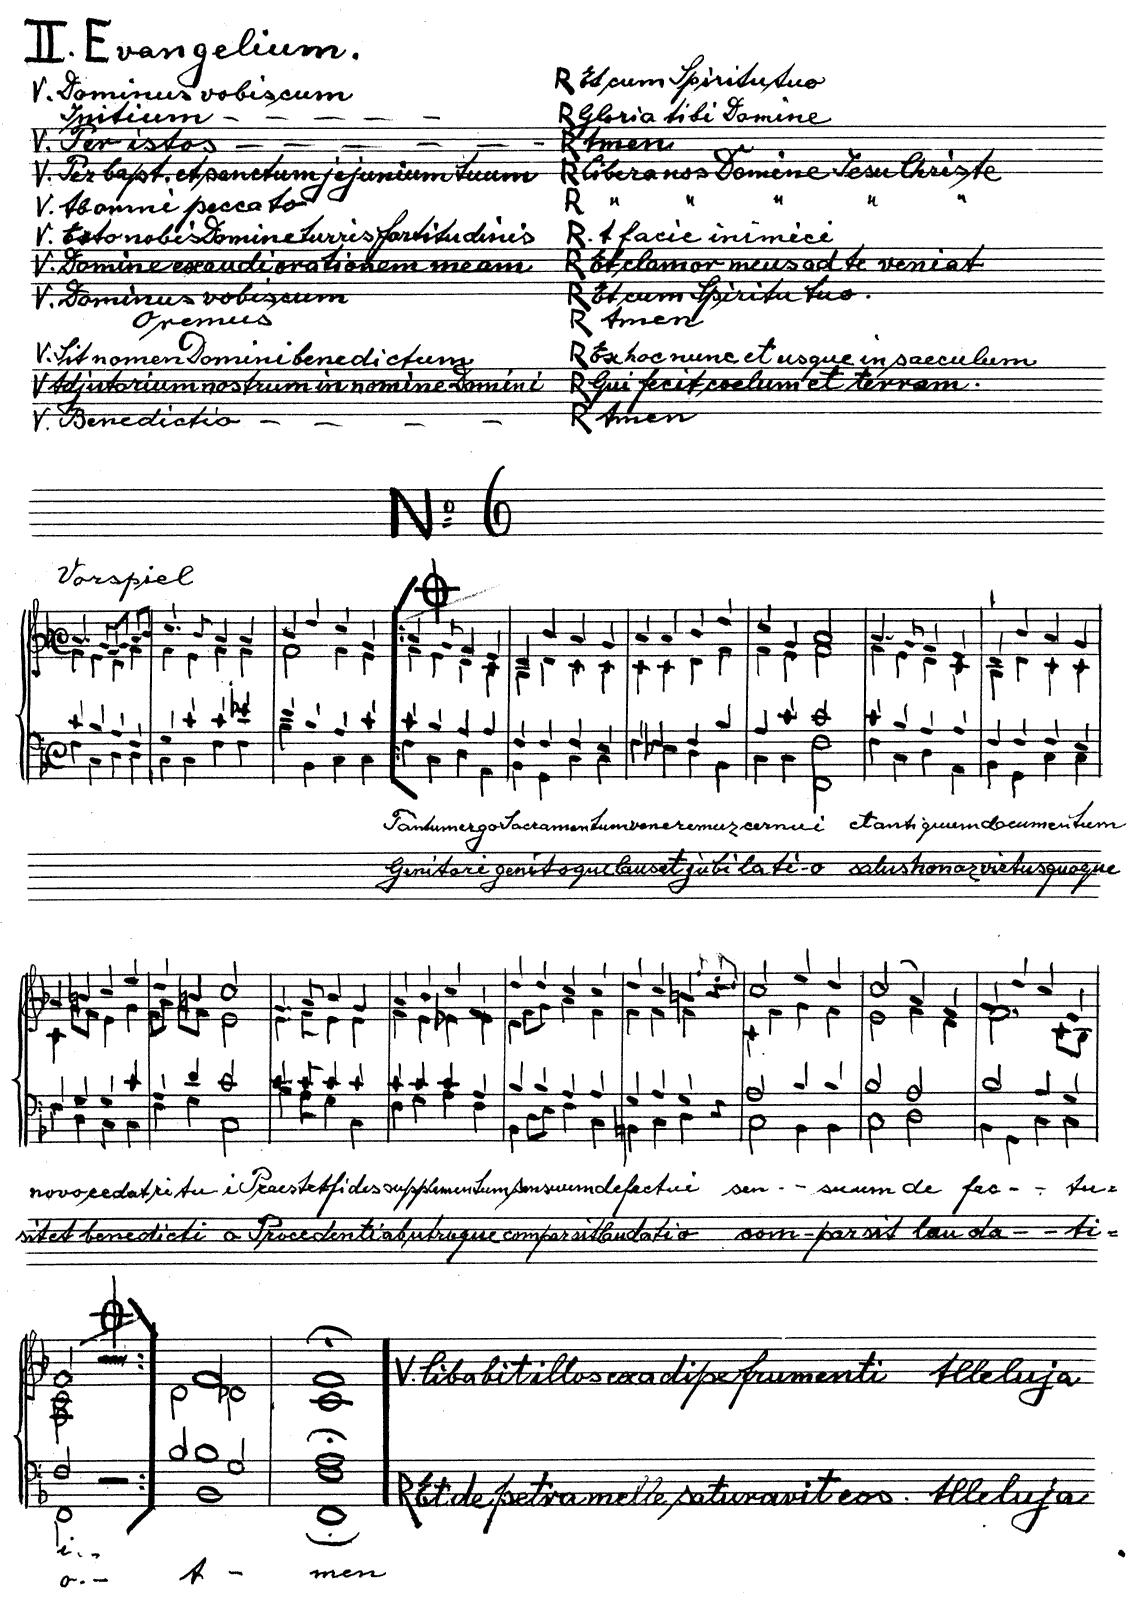 II. Evangelium.
V. Dominus vobiscum R Et cum Spiritu tuo
Initium – – – – – R Gloria tibi Domine
V. Per istos – – – – – – R Amen
V. Per bapt. et sanctum jejunium tuum R libera nos Domine Jesu Christe
V. Ab omni peccato R " " " " "
V. Esto nobis Domine turris fortitudinis R. A facie inimici
V. Domine exaudi orationem meam R Et clamor meus ad te veniat
V. Dominus vobiscum R Et cum Spiritu tuo.
Oremus R Amen
V. Sit nomen Domini benedictum R Ex hoc nunc et usque in saeculum
V Adjutorium nostrum in nomine Domini R Qui fecit coelum et terram.
V. Benedictio – – – – R Amen
No 6
Vorspiel
Tantum ergo Sacramentum veneremur cernui et antiquum documentum
Genitori genitoque laus et jubilati-o salus honor virtus quoque
novo cedat ritu i Praestet fides supplementum sensuum defectui sen - - suum de fec - - tu=
sit et benedicti o Procedenti ab utroque compar sit laudatio com-par sit lau da - - ti=
V. Cibabit illos ex adipe frumenti Alleluja
R Et de petra melle saturavit eos. Alleluja
i. -
o. - A - men